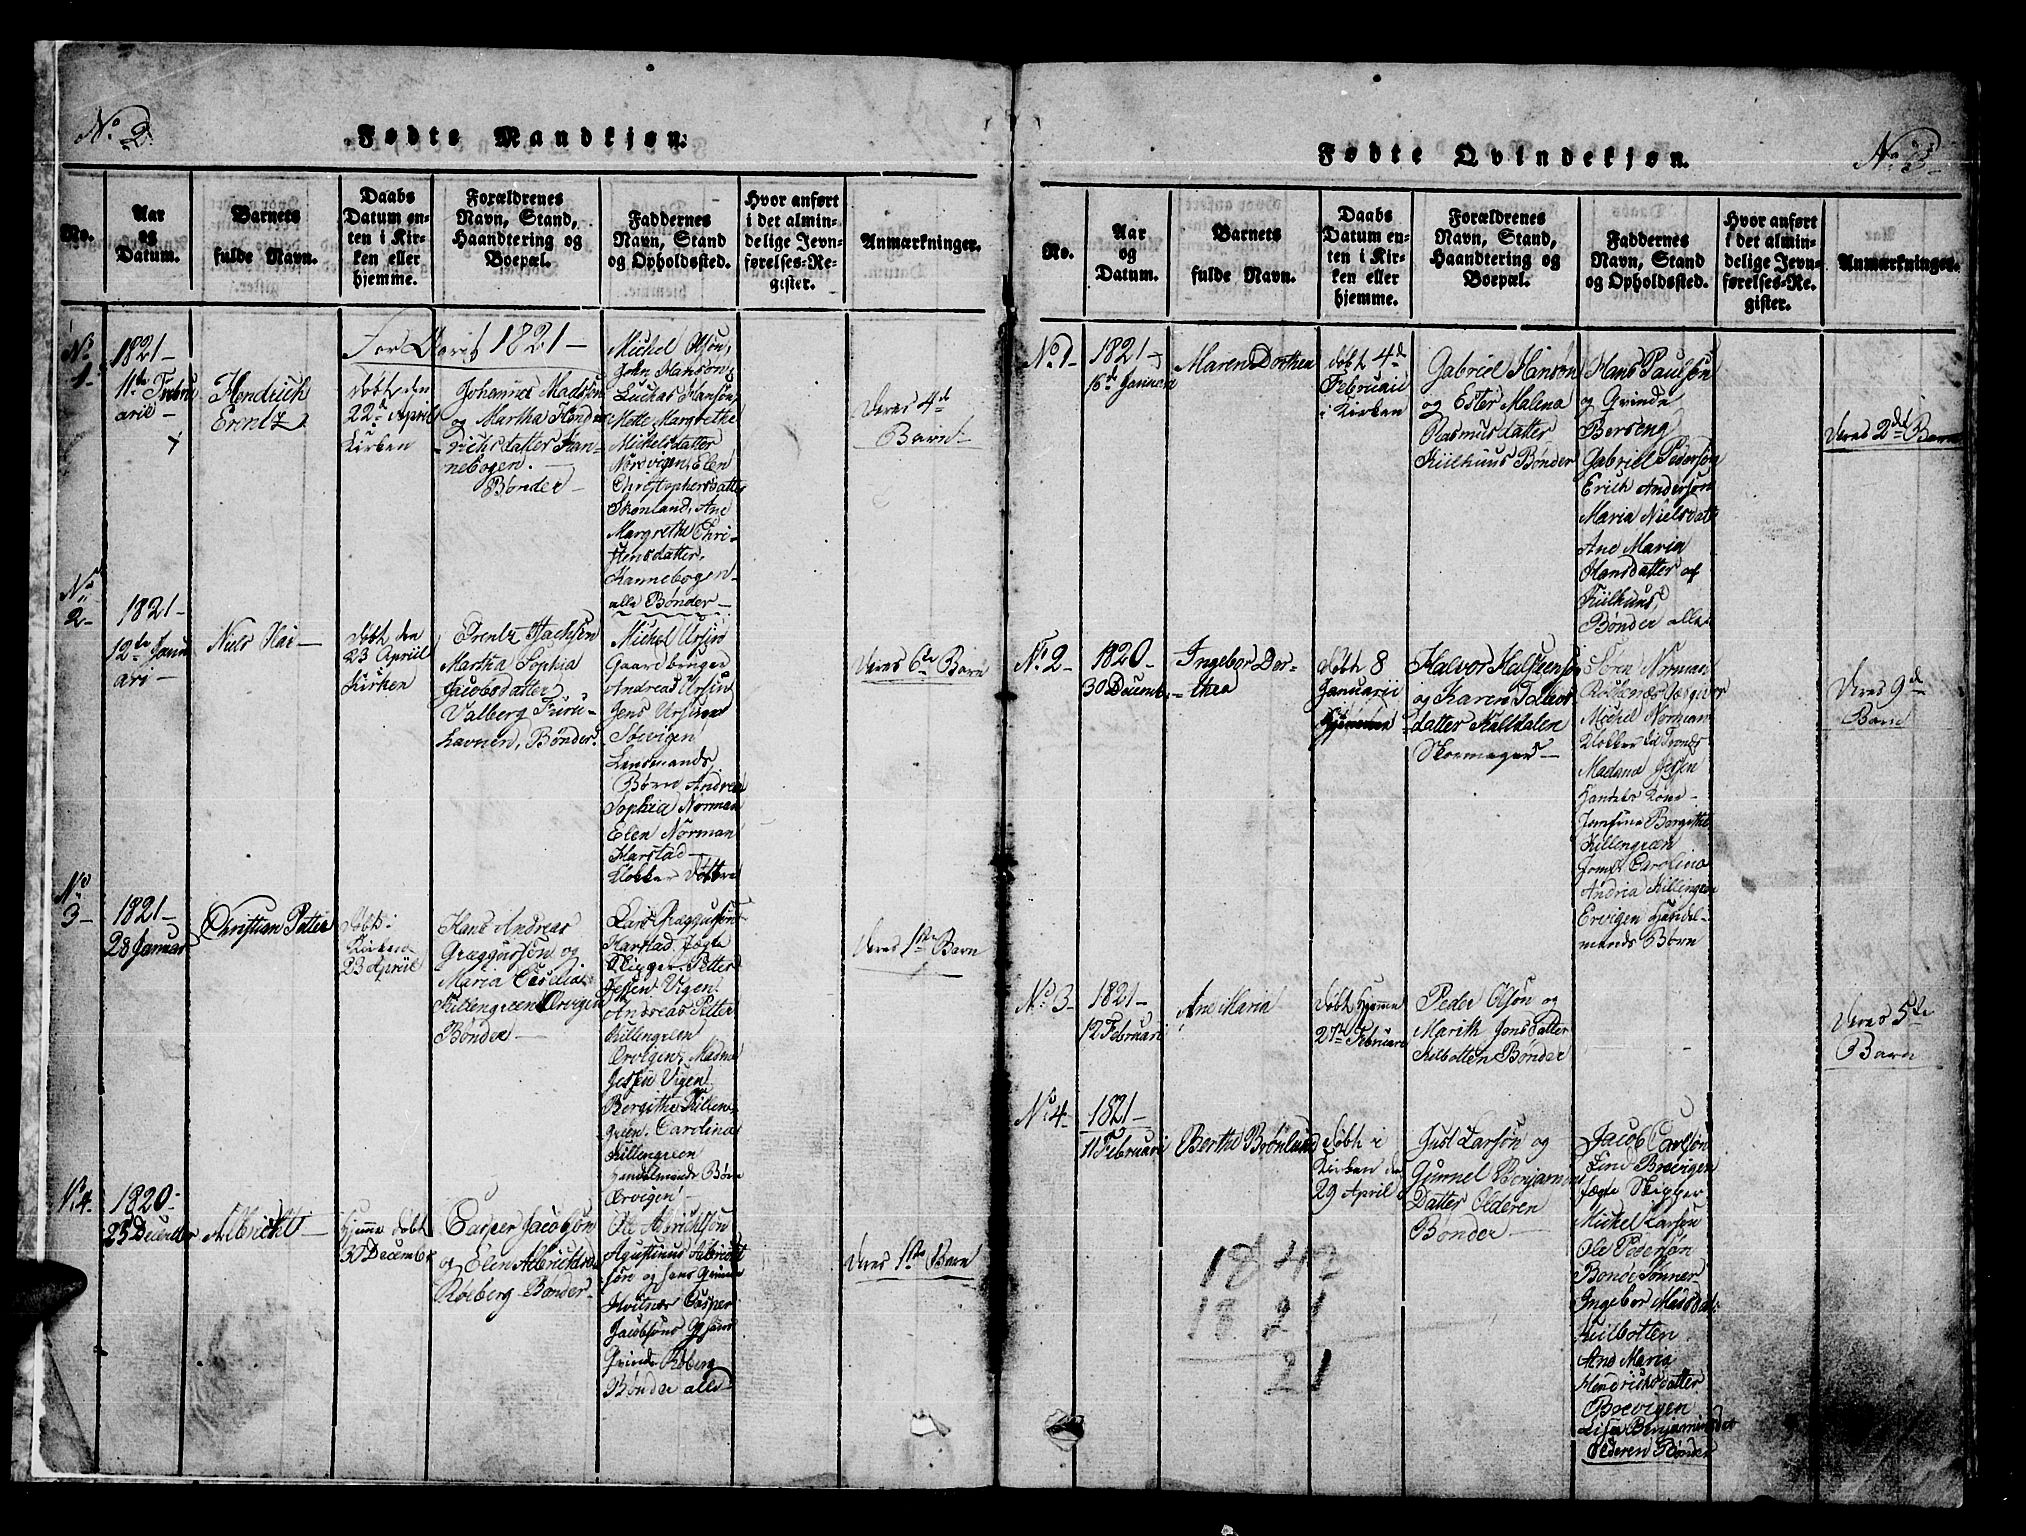 No. 2.
Fødte Mandkjøn.
No.
Aar
og
Datum.
Barnets
fulde Navn.
Daabs
Datum en-
ten i Kir-
ken eller
hjemme.
Forældrenes
Navn, Stand,
Haandtering og
Boepæl.
Faddernes
Navn, Stand
og Opholdssted.
Hvor anført
i det almin-
delige Jevn-
førelses-Re-
gister.
Anmærkninger.
For Aaret 1821 -
No.
1.
1821 -
11te Febru
arii -
Hendrich
Erentz
døbt den
22de April
Kirken
Johannes Madssøn
og Martha Hend-
richsdatter Kan-
nebogen. -
Bønder -
Michel Olsøn,
John Hansøn,
Luchas Hansøn,
Mette Margrethe
Michelsdatter
Norvigen, Elen
Christophersdatter
Skonland, Ane
Margretha Chri-
stensdatter,
Kannebogen -
alle Bønder -
Deres 4de
Barn -
No.
2 -
1821 -
12te Janu
ari -
Niels Kai -
døbt den
23 Apriil
Kirken
Erentz Isachsen
Martha Sophia
Jacobsdatter
Valberg Furu-
havnen, Bønder.
Michel Ursin
Gaardbruger
Andreas Ursin
Jens Ursinn
Sørvigen
Lensmands
Børn Andrea
Sophia Norman
Elen Norman
Harstad -
Klokker Døttre
Deres 6te Barn
No.
3 -
1821 -
28 Januar
Christian Petter
døbt i
Kirken
23 Apriil
Hans Andreas
Græggersøn og
Maria Cecilia
Killengreen Ervigen
Bønder -
Lars Græggersøn
Harstad Jægte
Skipper Petter
Jessen Vigen
Andreas Petter
Killengreen
Ervigen, Madme
Jessen Vigen
Bergithe Killen-
green, Carolina
Killengreen
Handelmands Børn
Ervigen
Deres 1ste Barn
No 4.
1820 -
25 December
Albricht -
Hjemme døbt
30 December
Casper Jacobsøn
og Elen Albrichtsda
Røeberg - Bønder -
Ole Albrichtsøn
Agustinus Albricht
søn og hans Qvinde
Hvitnæs Casper
Jacobsøns
Qvinde Røberg
Bønder alle
Deres 1ste Barn
Fødte Qvindekjøn.
No. 3 -
No.
Aar
og
Datum.
Barnets
fulde Navn.
Daabs
Datum en-
ten i Kir-
ken eller
hjemme.
Forældrenes
Navn, Stand,
Haandtering og
Boepæl.
Faddernes
Navn, Stand
og Opholdssted.
Hvor anført
i det almin-
delige Jevn-
førelses-Re-
gister.
Anmærkninger.
No 1 -
1821 -
16de Januari
Maren Dorthea
døbt 4de
Februarii
i Kirken
Gabriel Hansøn
og Ester Malena
Rasmusdatter
Kiilhuus Bønder
Hans Paulsøn
og Qvinde
Berseng
Gabriel Pedersøn
Erich Andersøn
Maria Nielsdatt
Ane Maria
Hansdatter af
Kiilhuus,
Bønder alle
Deres 2det Barn
No 2 -
1820 -
30 Decemb.
Ingebor Dor-
thea
døbt 8
Januarii
Hjemme
Halvor Halsteensøn
og Karen Tolløvs
datter Kaldalen
Skoemager -
Søren Norman
Michel Norman
Klokker til Trones
Madame Jessen
Handels Kone -
Jomfrue Bergithe
Killengreen
Jomf. Carolina
Andria Killingreen
Ervigen Handel-
mands Børn
Deres 9de
Barn
No 3 -
1821 -
12 Februari
Ane Maria
døbt Hjemme
27de Februari
Peder Olsøn og
Marith Jonsdatter
Kilbotten Bønder
Deres 5te
Barn
No 4 -
1821 -
11 Februari
Berthe Brønlund
døbt i
Kirken den
29 April
Just Larsøn og
Gunnel Benjamins
Datter Olderen
Bønder -
Jacob Carlsøn
Lind Brevigen
Jægte Skipper
Michel Larsøn
Ole Pedersøn
Bønde Sønner
Ingebor Madsdatter
Kiilbotten
Ane Maria
Hendrichsdatter
Brevigen
Lisa Benjaminsdat
Olderen Bønder
1842
1821
21